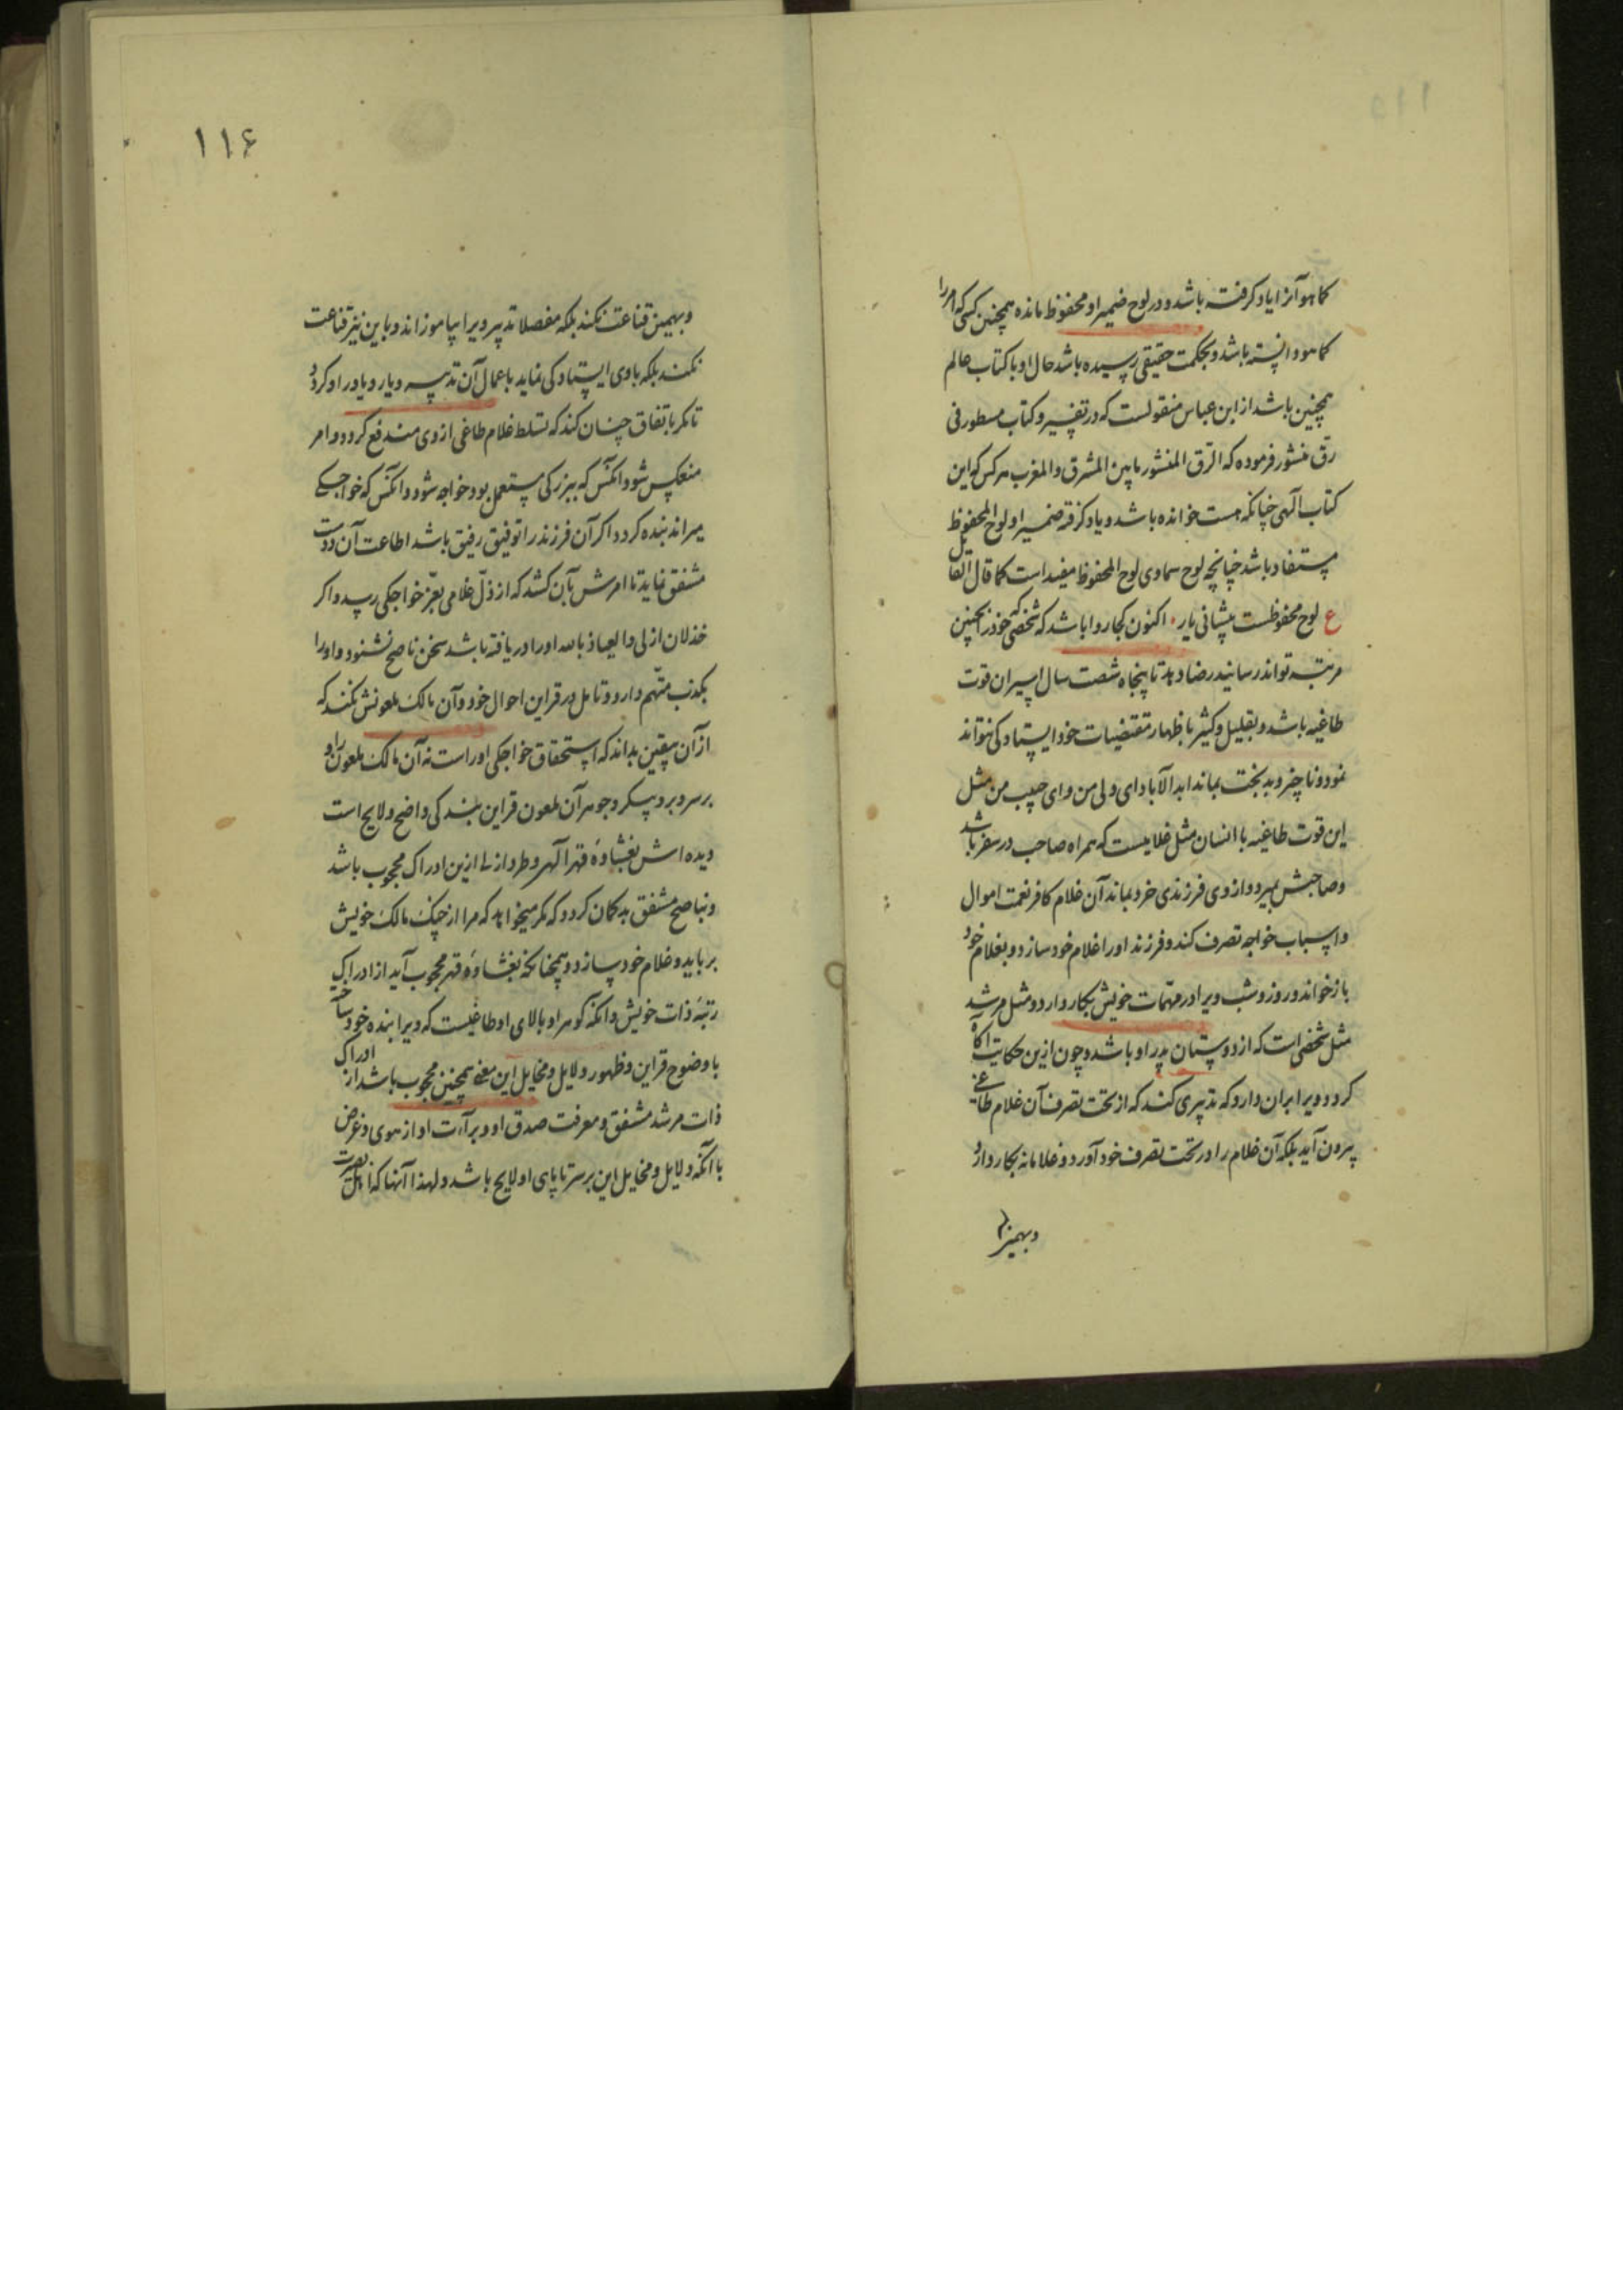 کماهو آنرا یاد کرفته باشد و در لوح ضمیر او محفوظ مانده همچنین کسی که امر را
کماهو دانسته باشد و بحکمت حقیقی رسیده باشد حال او با کتاب عالم
همچنین باشد از ابن عباس منقولست که در تفسیر و کتاب مسطور فی
رق منشور فرموده که الرق المنشور مابین المشرق والمغرب هر کس که این
کتاب الهی چنانکه هست خوانده باشد و یاد کرفته ضمیر او لوح المحفوظ
مستفاد باشد چنانچه لوح سماوی لوح المحفوظ مفید است کما قال القایل
ع لوح محفوظست پیشانی یار . اکنون کجا روا باشد که شخصی که خود را بچنین
مرتبه تواند رسانید رضا دهد تا پنجاه شصت سال اسیر ان قوت
طاغیه باشد و بقلیل و کثیر باظهار مقتضیات خود ایستادکی نتواند
نمود و ناچیز و بدبخت بماند ابد الآباد ای ولی من و ای حبیب من مثل
این قوت طاغیه با انسان مثل غلامیست که همراه صاحب در سفر باشد
و صاحبش بمیرد و از وی فرزندی خرد بماند آن غلام کافر نعمت اموال
و اسباب خواجه تصرف کند و فرزند او را غلام خود سازد و بغلام خود
باز خواند و روز و شب ویرا در مهمات خویش بکار دارد و مثل مرشد
مثل شخصی است که از دوستان پدر او باشد و چون ازین حکایت آکاه
کردد ویرا بران دارد که تدبیری کند که از تحت تصرف آن غلام طاغی
بیرون آید بلکه آن غلام را در تحت تصرف خود آورد و غلامانه بکار دارد
و بهمین
۱۱۶
و بهمین قناعت نکند بلکه مفصلا تدبیر ویرا بیاموزاند و باین نیز قناعت
نکند بلکه با وی ایستادکی نماید باعمال آن تدبیر و یار و یاور او کردد
تا مکر باتفاق چنان کند که تسلط غلام طاغی از وی مندفع کردد و امر
منعکس شود و انکس که ببزرکی مستعمل بود خواجه شود و انکس که خواجکی
میراند بنده کردد اکر آن فرزند را توفیق رفیق باشد اطاعت آن دوست
مشفق نماید تا امرش بآن کشد که از ذل غلامی بعز خواجکی رسد و اکر
خذلان ازلی و العیاذ بالله او را دریافته باشد سخن ناصح نشنود و او را
بکذب متهم دارد و تامل در قراین احوال خود و آن مالک ملعونش نکند که
از آن بیقین بداند که استحقاق خواجکی او راست نه آن مالک ملعون را و
بر سر و بر و پیکر و جوهر آن ملعون قراین بندکی واضح و لایح است
دیده اش بغشاوه قهر الهی و طرد ازلی ازین ادراک محجوب باشد
و بناصح مشفق بد کمان کردد که مکر میخواهد که مرا از چنک مالک خویش
برباید و غلام خود سازد و همچنانکه بغشاوه قهر محجوب آید از ادراک
رتبه ذات خویش و انکه کوهر او بالای او طاغیست که ویرا بنده خود ساخته
با وضوح قراین و ظهور دلایل و مخایل این معنی همچنین محجوب باشد از ادراک
ذات مرشد مشفق و معرفت صدق او و براءت او از هوی و غرض
با آنکه دلایل و مخایل این بر سر تا پای او لایح باشد و لهذا آنها که اهل بصیرت